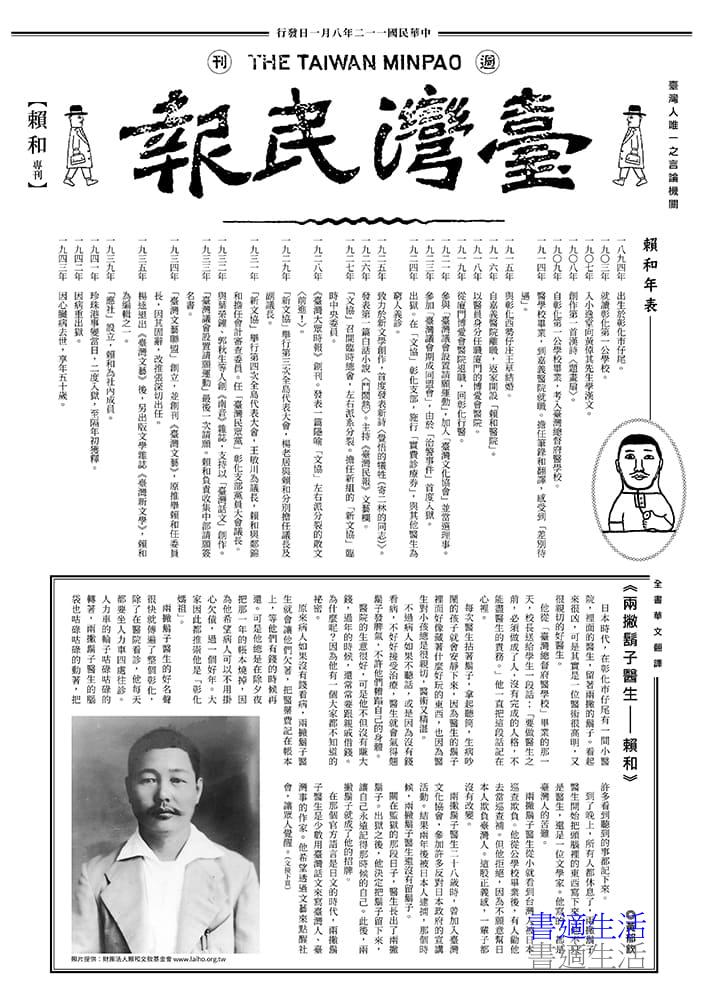 中華民國一一二年八月一日發行
週刊
THE TAIWAN MINPAO
臺灣民報
臺灣人唯一之言論機關
【賴和 專刊】
賴和年表
一八九四年　出生於彰化市仔尾。
一九〇三年　就讀彰化第一公學校。
一九〇七年　入小逸堂向黃倬其先生學漢文。
一九〇八年　創作第一首漢詩〈題畫扇〉。
一九〇九年　自彰化第一公學校畢業，考入臺灣總督府醫學校。
一九一四年　醫學校畢業，到嘉義醫院就職。擔任筆錄和翻譯，感受到「差別待遇」。
一九一五年　與彰化西勢仔庄王草結婚。
一九一六年　自嘉義醫院離職，返家開設「賴和醫院」。
一九一八年　以醫員身分任職廈門的博愛會醫院。
一九一九年　從廈門博愛會醫院退職，回彰化行醫。
一九二一年　參與「臺灣議會設置請願運動」，加入「臺灣文化協會」並當選理事。
一九二三年　參加「臺灣議會期成同盟會」，由於「治警事件」首度入獄。
一九二四年　出獄。在「文協」彰化支部，施行「實費診療券」，與其他醫生為窮人義診。
一九二五年　致力於新文學創作，首度發表新詩〈覺悟的犧牲（寄二林的同志）〉。
一九二六年　發表第一篇白話小說〈鬥鬧熱〉，主持《臺灣民報》文藝欄。
一九二七年　「文協」召開臨時總會，左右派系分裂。擔任新組的「新文協」臨時中央委員。
一九二八年　《臺灣大眾時報》創刊。發表一篇隱喻「文協」左右派分裂的散文〈前進！〉。
一九二九年　「新文協」舉行第三次全島代表大會，楊老居與賴和分別擔任議長及副議長。
一九三一年　「新文協」舉行第四次全島代表大會，王敏川為議長，賴和與鄭錦和擔任會計審查委員。任「臺灣民眾黨」彰化支部黨員大會議長。
一九三二年　與葉榮鐘、郭秋生等人創《南音》雜誌，支持以「臺灣話文」創作。
一九三三年　「臺灣議會設置請願運動」最後一次請願。賴和負責收集中部請願簽名書。
一九三四年　「臺灣文藝聯盟」創立，並創刊《臺灣文藝》，原推舉賴和任委員長，因其固辭，改推張深切出任。
一九三五年　楊逵退出《臺灣文藝》後，另出版文學雜誌《臺灣新文學》，賴和為編輯之一。
一九三九年　「應社」設立，賴和為社內成員。
一九四一年　珍珠港事變當日，二度入獄，至隔年初獲釋。
一九四二年　因病重出獄。
一九四三年　因心臟病去世，享年五十歲。
全書華文翻譯
《兩撇鬍子醫生——賴和》
◎黃郁欽
日本時代，在彰化市仔尾有一間小醫
院，裡面的醫生，留著兩撇的鬍子。看起
來很凶，可是其實是一位醫術很高明，又
很親切的好醫生。
他從「臺灣總督府醫學校」畢業的那一
天，校長送給學生一段話：「要做醫生之
前，必須做成了人，沒有完成的人格，不
能盡醫生的責務。」他一直把這段話記在
心裡。
每次醫生拈著鬍子，拿起聽筒，生病吵
鬧的孩子就會安靜下來，因為醫生的鬍子
裡面好像藏著什麼好玩的東西，也因為醫
生對小孩總是很親切，醫術又精湛。
不過病人如果不聽話，或是因為沒有錢
看病，不好好接受治療，醫生就會氣得翹
鬍子發脾氣，不許他們糟蹋自己的身體。
醫院的生意很好，可是他不但沒有賺大
錢，過年的時候，還常常要跟親戚借錢。
為什麼呢？因為他有一個大家都不知道的
祕密。
原來病人如果沒有錢看病，兩撇鬍子醫
生就會讓他們欠著，把醫藥費記在帳本
上，等他們有錢的時候再
還。可是他總是在除夕夜
把那一年的帳本燒掉，因
為他希望病人可以不用掛
心欠債，過一個好年。大
家因此都推崇他是「彰化
媽祖」。
兩撇鬍子醫生的好名聲
很快就傳遍了整個彰化，
除了在醫院看診，他每天
都要坐人力車四處往診。
人力車的輪子咕碌咕碌的
轉著，兩撇鬍子醫生的腦
袋也咕碌咕碌的動著，把
許多看到聽到的事都記下來。
到了晚上，所有人都休息了，兩撇鬍子
醫生開始把頭腦裡的東西寫下來
是醫生，還是一位文學家。他寫的
臺灣人的苦難。
兩撇鬍子醫生從小就看到台灣人被日本
巡查欺負。他從公學校畢業後，有人勸他
去當巡查補。但他拒絕，因為不願意幫日
本人欺負臺灣人。這股正義感，一輩子都
沒有改變。
兩撇鬍子醫生二十八歲時，曾加入臺灣
文化協會，參加許多反對日本政府的宣講
活動。結果兩年後被日本人逮捕，那個時
候，兩撇鬍子醫生還沒有留鬍子。
關在監獄的那段日子，醫生長出了兩撇
鬍子。出獄之後，他決定把鬍子留下來，
讓自己永遠記得那時候的自己。此後，兩
撇鬍子就成了他的招牌。
在那個官方語言是日文的時代，兩撇鬍
子醫生是少數用臺灣話文來寫臺灣人、臺
灣事的作家。他希望透過文藝來點醒社
會，讓眾人覺醒。（文接下頁）
照片提供：財團法人賴和文教基金會 www.laiho.org.tw
書適生活
書適生活